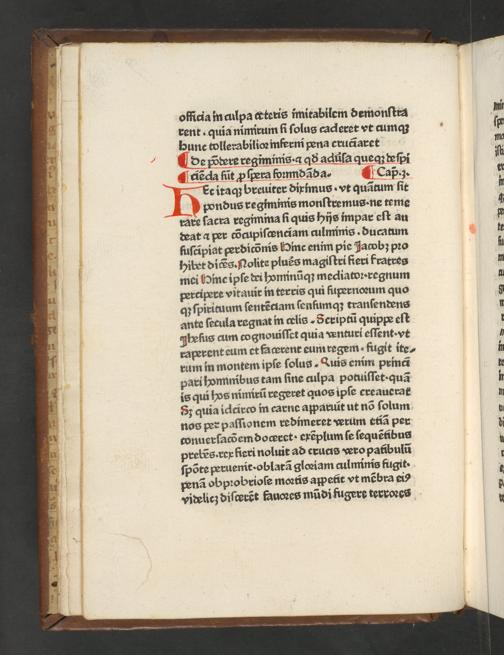 officia in culpa ceteris imitabilem demonstra
rent . quia nimirum si solus caderet vt cumqꝫ
hunc tollerabilior inferni pena cruciaret
¶ de põdere regiminis ⁊ qđ adũsa queqꝫ despi
ciẽda sũt ꝓspera formĩdãda . ¶ Cap̃.3.
Hec itaqꝫ breuiter diximus . vt quãtum sit
pondus regiminis monstremus . ne teme
rare sacra regimina si quis hijs impar est au
deat ⁊ per cõcupiscenciam culminis . ducatum
suscipiat perdicõnis Hinc enim pie Jacobꝰ pro
hibet dicẽs . Nolite plures magistri fieri fratres
mei Hinc ipse dei hominũqꝫ mediator . regnum
percipere vitauit in terris qui supernorum quo
qꝫ spirituum sentẽciam sensumqꝫ transcendens
ante secula regnat in celis . Scriptũ quippe est
Jhesus cum cognouisset quia venturi essent . vt
raperent eum et facerent eum regem . fugit ite-
rum in montem ipse solus . Quis enim princiꝑ
pari hominibus tam sine culpa potuisset . quã
is qui hos nimirũ regeret quos ipse creauerat
Sꝫ quia idcirco in carne apparuit ut nõ solum
nos per passionem redimeret verum etiã per
conuersacõem doceret . exẽplum se sequẽtibus
prebẽs . rex fieri noluit ad crucis vero patibulũ
spõte peruenit . oblatã gloriam culminis fugit .
penã obprobriose mortis appetit vt mẽbra eiꝰ
videlicꝫ discerẽt fauores mũdi fugere terrores